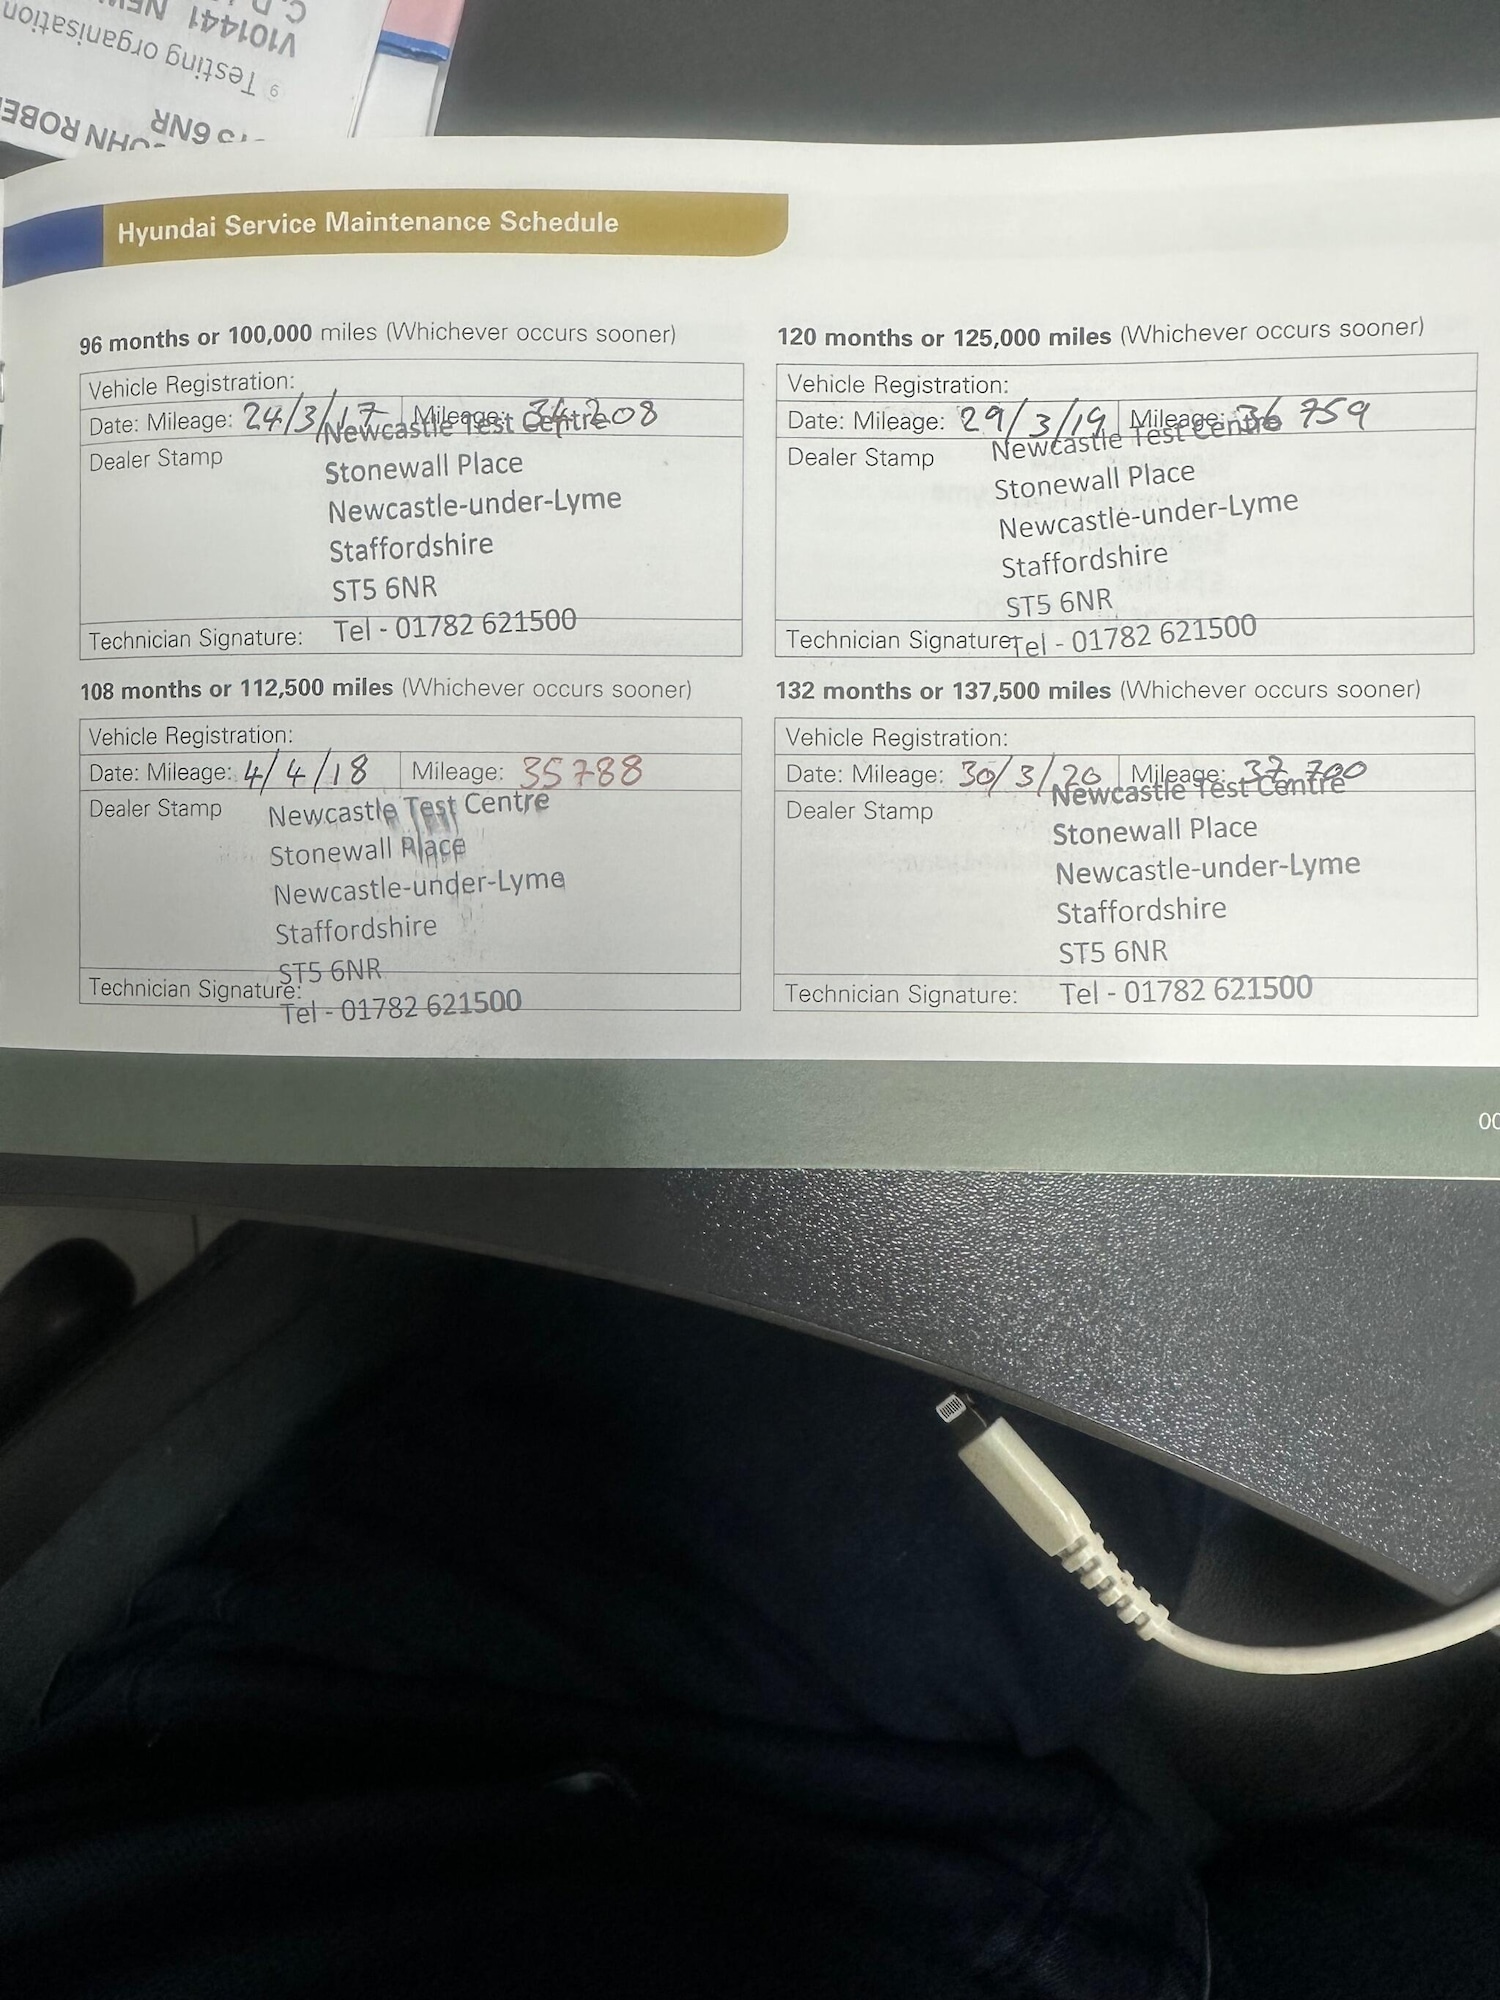 C.
V101441 NEW
9 Testing organisation
ST5 6NR
JOHN ROBE
Hyundai Service Maintenance Schedule
96 months or 100,000 miles (Whichever occurs sooner)
Vehicle Registration:
Date: Mileage: 24/3/17 Mileage: 34208
Dealer Stamp
Newcastle Test Centre
Stonewall Place
Newcastle-under-Lyme
Staffordshire
ST5 6NR
Tel - 01782 621500
Technician Signature:
108 months or 112,500 miles (Whichever occurs sooner)
Vehicle Registration:
Date: Mileage: 4/4/18 Mileage: 35788
Dealer Stamp
Newcastle Test Centre
Stonewall Place
Newcastle-under-Lyme
Staffordshire
ST5 6NR
Technician Signature:
Tel - 01782 621500
120 months or 125,000 miles (Whichever occurs sooner)
Vehicle Registration:
Date: Mileage: 29/3/19 Mileage: 36 759
Dealer Stamp
Newcastle Test Centre
Stonewall Place
Newcastle-under-Lyme
Staffordshire
ST5 6NR
Technician Signature:
Tel - 01782 621500
132 months or 137,500 miles (Whichever occurs sooner)
Vehicle Registration:
Date: Mileage: 30/3/20 Mileage: 37,700
Dealer Stamp
Newcastle Test Centre
Stonewall Place
Newcastle-under-Lyme
Staffordshire
ST5 6NR
Technician Signature:
Tel - 01782 621500
00